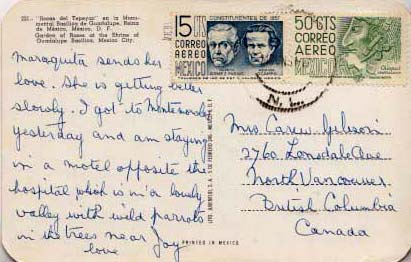 221.- "Rosas del Tepeyac" en la Monumental
Basilica de Guadalupe, Reina
de México, México, D. F.
Garden of Roses at the Shrine of
Guadalupe Basilica, Mexico City.
15 CTS
CONSTITUYENTES DE 1857
CORREO
AEREO
MEXICO
OCAMPO
50 CTS
CORREO
AEREO
MEXICO
N. L.
maraquita sends her
love. She is getting better
slowly. I got to Monterrey
yesterday and am staying
in a motel opposite the
hospital which is in a lovely
valley with wild parrots
in the trees near Joy
love
Mrs. Carew Gibson
2760 Lonsdale Ave
North Vancouver
British Columbia
Canada
PRINTED IN MEXICO